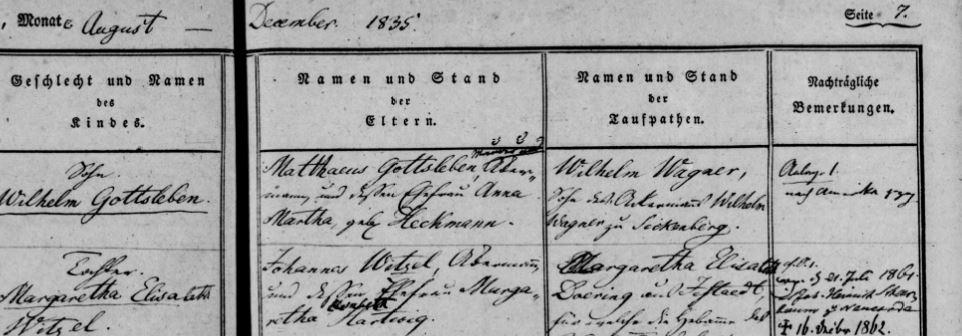 , Monate August — December. 1835.
Seite 7.
Geschlecht und Namen
des
Kindes.
Namen und Stand
der
Eltern.
Namen und Stand
der
Taufpathen.
Nachträgliche
Bemerkungen.
Sohn.
Wilhelm Gottsleben.
Matthaeus Gottsleben, Acker-
mann, und dessen Ehefrau Anna
Martha, geb. Heckmann.
Wilhelm Wagner,
Sohn des Ackermanns Wilhelm
Wagner zu Sickenberg.
nach Amerika
Tochter.
Margaretha Elisabeth
Witzel.
Johannes Witzel, Ackermann,
und dessen Ehefrau Marga-
retha Hartwig.
Margaretha Elisabeth
Doering aus
für welche die Hebamme
21. Juli 1861
Joh. Heinrich
zu
† 16. 1862.